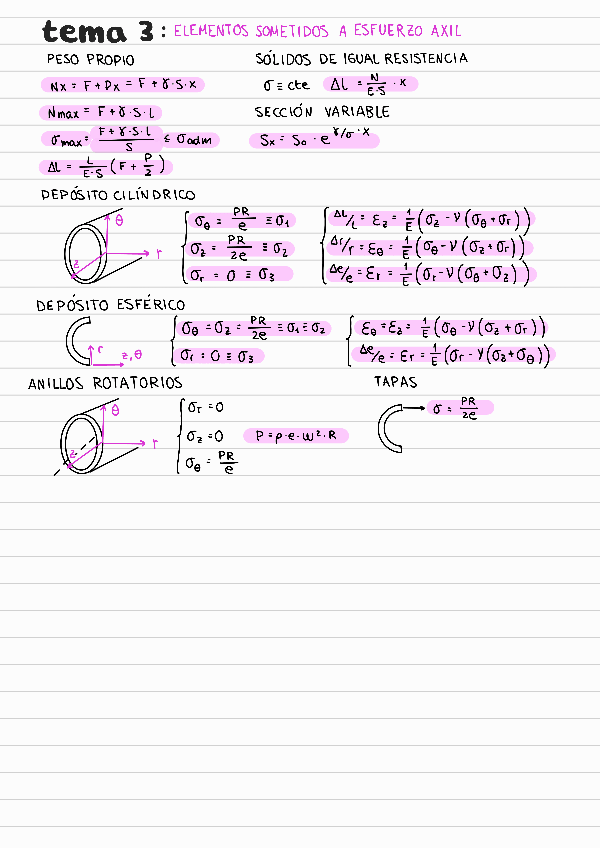 tema 3: ELEMENTOS SOMETIDOS A ESFUERZO AXIL
PESO PROPIO
Nx = F + Px = F + γ·S·x
Nmax = F + γ·S·L
σmax = (F + γ·S·L)/S ≤ σadm
ΔL = L/(E·S) (F + P/2)
SÓLIDOS DE IGUAL RESISTENCIA
σ ≡ cte ΔL = N/(E·S) · x
SECCIÓN VARIABLE
Sx = So · e^(γ/σ · x)
DEPÓSITO CILÍNDRICO
θ
r
z
σθ = PR/e ≡ σ1
σz = PR/2e ≡ σ2
σr = 0 ≡ σ3
ΔL/L = εz = 1/E (σz - ν(σθ + σr))
Δr/r = εθ = 1/E (σθ - ν(σz + σr))
Δe/e = εr = 1/E (σr - ν(σθ + σz))
DEPÓSITO ESFÉRICO
r
z, θ
σθ = σz = PR/2e ≡ σ1 ≡ σ2
σr = 0 ≡ σ3
εθ = εz = 1/E (σθ - ν(σz + σr))
Δe/e = εr = 1/E (σr - ν(σz + σθ))
ANILLOS ROTATORIOS
θ
r
z
σr = 0
σz = 0 P = ρ·e·ω²·R
σθ = PR/e
TAPAS
σ = PR/2e